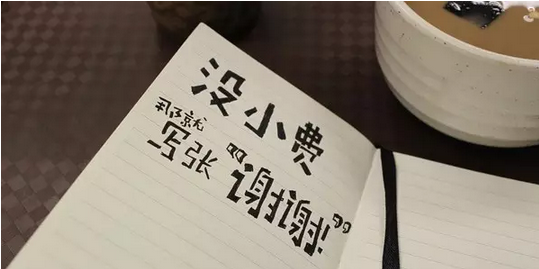 没小费
那就
写张“谢谢!”